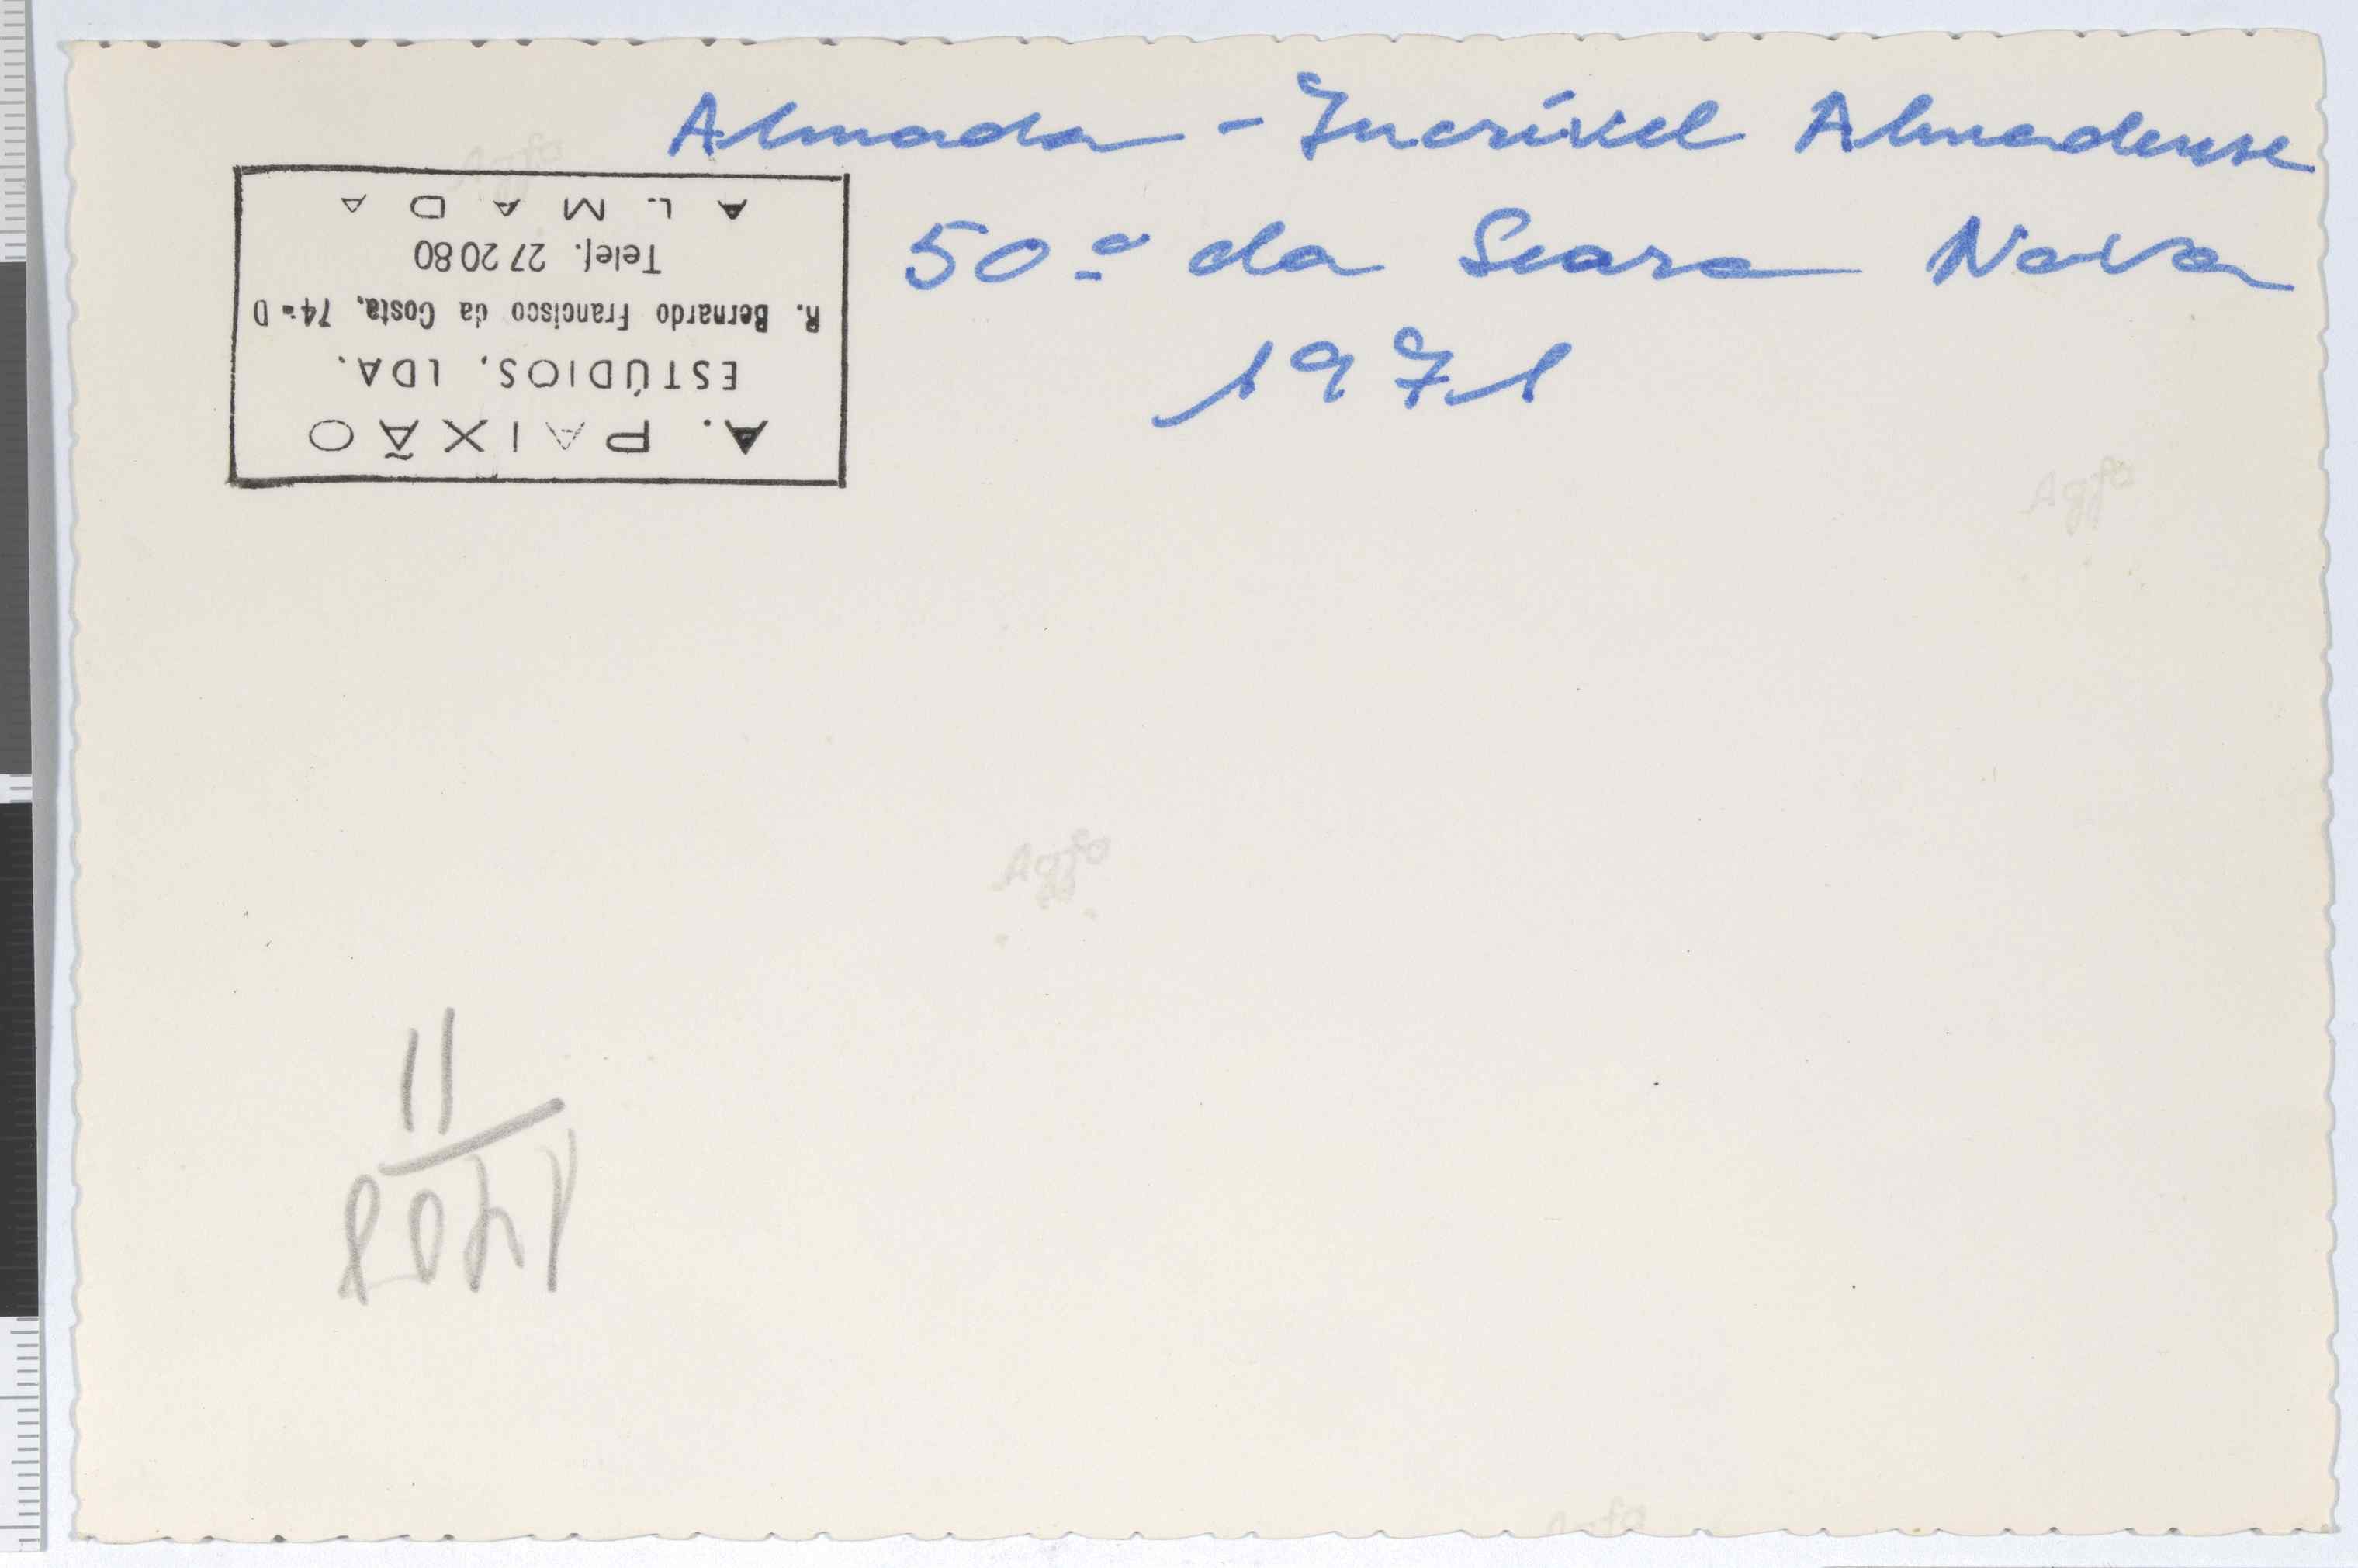 Almada - Incrível Almadense
50º da Seara Nova
1971
A. PAIXÃO
ESTÚDIOS, LDA.
R. Bernardo Francisco da Costa, 74-D
Telef. 27 20 80
ALMADA
Agfa
Agfa
Agfa
Agfa
11